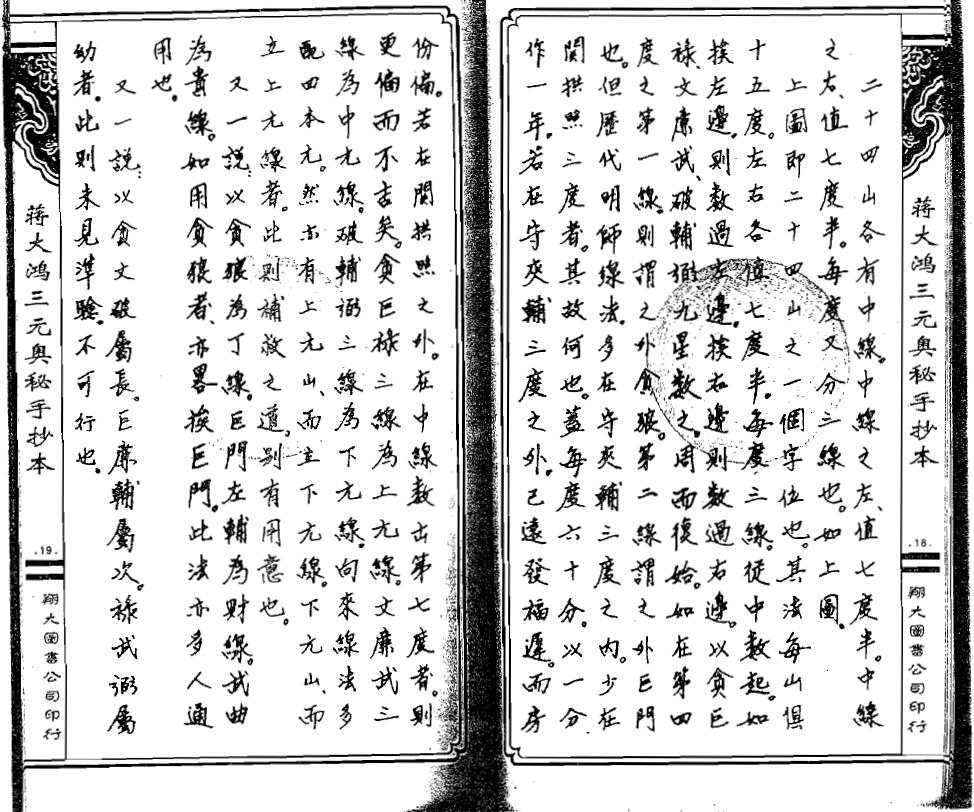 蒋大鸿三元奥秘手抄本
.18.
翔大圖書公司印行
二十四山各有中線。中線之左、值七度半。中線
之右、值七度半。每度又分三線也。如上圖。
上圖即二十四山之一個字位也。其法每山俱
十五度。左右各值七度半。每度三線。從中數起。如
挨左邊。則數過左邊。挨右邊則數過右邊。以貪巨
祿文廉武、破輔弼、九星數之。周而復始。如在第四
度之第一線。則謂之外貪狼。第二線謂之外巨門
也。但歷代明師線法。多在守夾輔三度之內。少在
関拱照三度者。其故何也。蓋每度六十分。以一分
作一年。若在守夾輔三度之外。已遠發福遲。而房
份偏。若在関拱照之外。在中線数出第七度者。則
更偏而不吉矣。貪巨祿三線為上元線。文廉武三
線為中元線。破輔弼三線為下元線。向來線法多
配田本元。然亦有上元山、而主下元線。下元山、而
立上元線者。此則補救之道。別有用意也。
又一說：以貪狼為丁線。巨門左輔為財線。武曲
為貴線。如用貪狼者、亦畧挨巨門。此法亦多人通
用也。
又一說：以貪文破屬長。巨廉輔屬次。祿武弼屬
幼者。此則未見準驗。不可行也。
蒋大鸿三元奥秘手抄本
.19.
翔大圖書公司印行